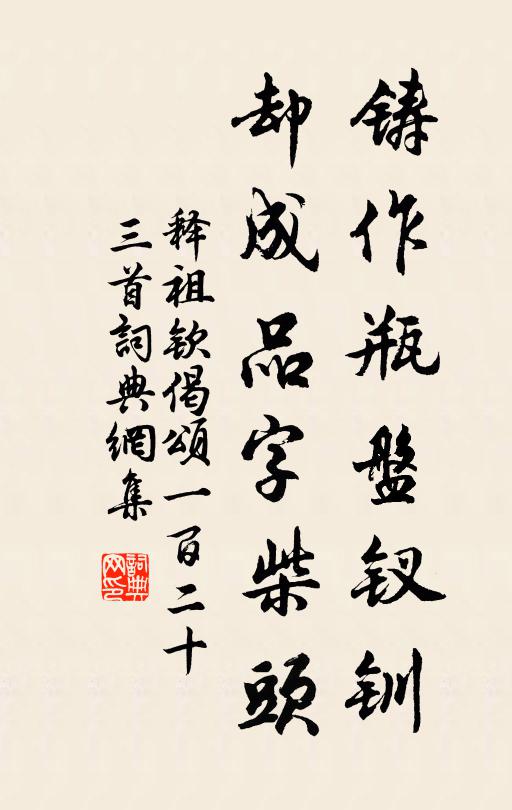 铸作瓶盤钗钏
却成品字柴頭
释祖钦偈頌一百二十
三首詞典網集
詞典
网印